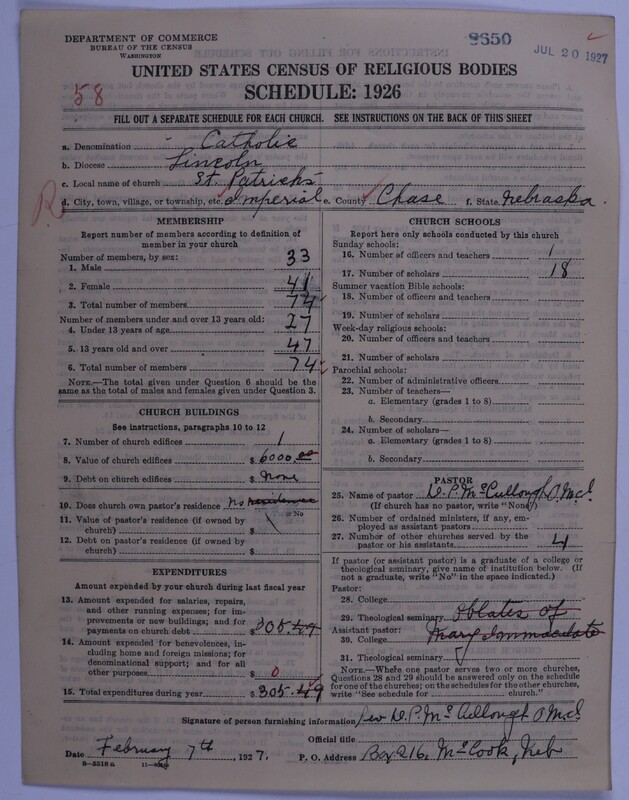 DEPARTMENT OF COMMERCE
BUREAU OF THE CENSUS
WASHINGTON
9650
JUL 20 1927
UNITED STATES CENSUS OF RELIGIOUS BODIES
SCHEDULE: 1926
58
FILL OUT A SEPARATE SCHEDULE FOR EACH CHURCH. SEE INSTRUCTIONS ON THE BACK OF THIS SHEET
a. Denomination Catholic
b. Diocese Lincoln
c. Local name of church St. Patrick's
R
d. City, town, village, or township, etc. Imperial e. County Chase f. State Nebraska
MEMBERSHIP
Report number of members according to definition of
member in your church
Number of members, by sex:
1. Male 33
2. Female 41
3. Total number of members 74
Number of members under and over 13 years old:
4. Under 13 years of age 27
5. 13 years old and over 47
6. Total number of members 74
NOTE.—The total given under Question 6 should be the
same as the total of males and females given under Question 3.
CHURCH BUILDINGS
See instructions, paragraphs 10 to 12
7. Number of church edifices 1
8. Value of church edifices $ 6000.00
9. Debt on church edifices $ None
10. Does church own pastor's residence? No residence
Yes or No
11. Value of pastor's residence (if owned by
church) $
12. Debt on pastor's residence (if owned by
church) $
EXPENDITURES
Amount expended by your church during last fiscal year
13. Amount expended for salaries, repairs,
and other running expenses; for im-
provements or new buildings; and for
payments on church debt $ 305.49
14. Amount expended for benevolences, in-
cluding home and foreign missions; for
denominational support; and for all
other purposes $ 0
15. Total expenditures during year $ 305.49
CHURCH SCHOOLS
Report here only schools conducted by this church
Sunday schools:
16. Number of officers and teachers 1
17. Number of scholars 18
Summer vacation Bible schools:
18. Number of officers and teachers
19. Number of scholars
Week-day religious schools:
20. Number of officers and teachers
21. Number of scholars
Parochial schools:
22. Number of administrative officers
23. Number of teachers—
a. Elementary (grades 1 to 8)
b. Secondary
24. Number of scholars—
a. Elementary (grades 1 to 8)
b. Secondary
PASTOR
25. Name of pastor D. P. McCullough O.M.I.
(If church has no pastor, write "None")
26. Number of ordained ministers, if any, em-
ployed as assistant pastors
27. Number of other churches served by the
pastor or his assistants 4
If pastor (or assistant pastor) is a graduate of a college or
theological seminary, give name of institution below. (If
not a graduate, write "No" in the space indicated.)
Pastor:
28. College
29. Theological seminary Oblates of
Assistant pastor:
30. College Mary Immaculate
31. Theological seminary
NOTE.—Where one pastor serves two or more churches,
Questions 28 and 29 should be answered only on the schedule
for one of the churches; on the schedules for the other churches,
write "See schedule for church."
Signature of person furnishing information Rev D. P. McCullough O.M.I.
Official title
Date February 7th, 1927. P. O. Address Box 216, McCook, Neb
8—5518a